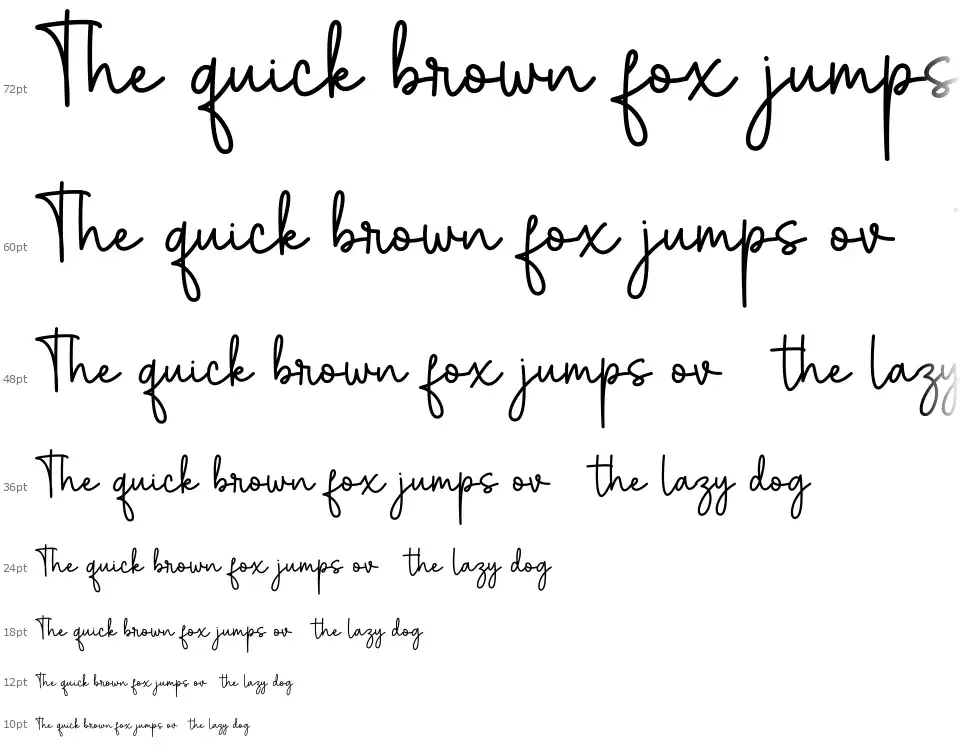 72pt The quick brown fox jumps
60pt The quick brown fox jumps ov
48pt The quick brown fox jumps ov the lazy
36pt The quick brown fox jumps ov the lazy dog
24pt The quick brown fox jumps ov the lazy dog
18pt The quick brown fox jumps ov the lazy dog
12pt The quick brown fox jumps ov the lazy dog
10pt The quick brown fox jumps ov the lazy dog